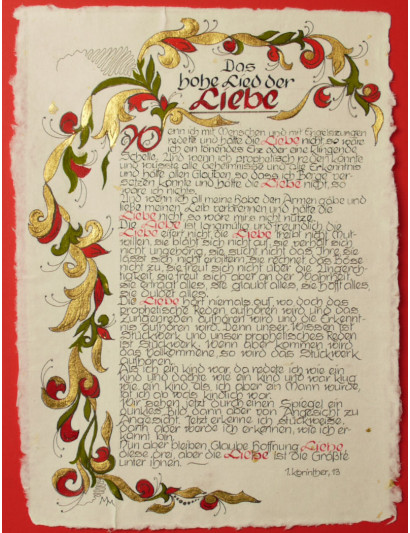 Das
hohe Lied der
Liebe
Wenn ich mit Menschen und mit Engelszungen
redete und hätte die Liebe nicht, so wäre
ich ein tönendes Erz oder eine klingende
Schelle. Und wenn ich prophetisch reden könnte
und wüsste alle Geheimnisse und alle Erkenntnis
und hätte allen Glauben, so dass ich Berge ver-
setzen könnte und hätte die Liebe nicht, so
wäre ich nichts.
Und wenn ich all meine Habe den Armen gäbe und
ließe meinen Leib verbrennen und hätte die
Liebe nicht, so wäre mirs nicht nütze.
Die Liebe ist langmütig und freundlich, die
Liebe eifert nicht, die Liebe treibt nicht Mut-
willen, sie bläht sich nicht auf, sie verhält sich
nicht ungehörig, sie sucht nicht das Ihre, sie
lässt sich nicht erbittern, sie rechnet das Böse
nicht zu, sie freut sich nicht über die Ungerech-
tigkeit, sie freut sich aber an der Wahrheit,
sie erträgt alles, sie glaubt alles, sie hofft alles,
sie duldet alles.
Die Liebe hört niemals auf, wo doch das
prophetische Reden aufhören wird und das
Zungenreden aufhören wird und die Erkennt-
nis aufhören wird. Denn unser Wissen ist
Stückwerk und unser prophetisches Reden
ist Stückwerk. Wenn aber kommen wird
das Vollkommene, so wird das Stückwerk
aufhören.
Als ich ein Kind war, da redete ich wie ein
Kind und dachte wie ein Kind und war klug
wie ein Kind, als ich aber ein Mann wurde,
tat ich ab was kindlich war.
Wir sehen jetzt durch einen Spiegel ein
dunkles Bild, dann aber von Angesicht zu
Angesicht. Jetzt erkenne ich stückweise,
dann aber werde ich erkennen, wie ich er-
kannt bin.
Nun aber bleiben Glaube, Hoffnung, Liebe,
diese drei, aber die Liebe ist die Größte
unter ihnen.
1. Korinther, 13